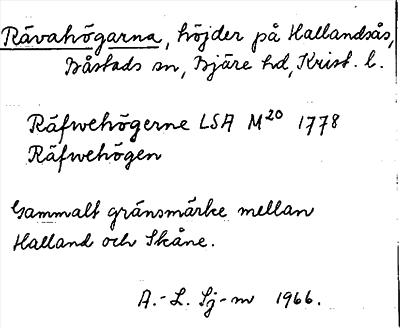 Rävahögarna, höjder på Hallandsås,
Båstads sn, Bjäre hd, Krist. l.
Räfwehögerne LSA M20 1778
Räfwehögen
Gammalt gränsmärke mellan
Halland och Skåne.
A.-L. Sj-m 1966.